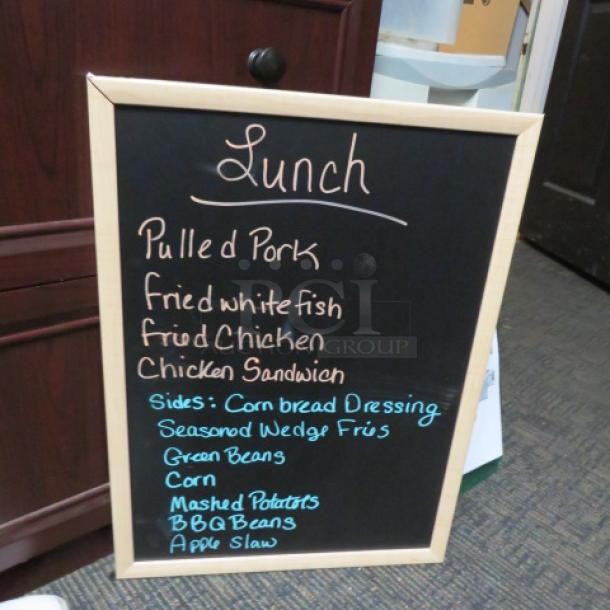 Lunch
Pulled Pork
Fried whitefish
Fried Chicken
Chicken Sandwich
Sides: Cornbread Dressing
Seasoned Wedge Fries
Green Beans
Corn
Mashed Potatoes
BBQ Beans
Apple Slaw
PCI
AUCTION GROUP